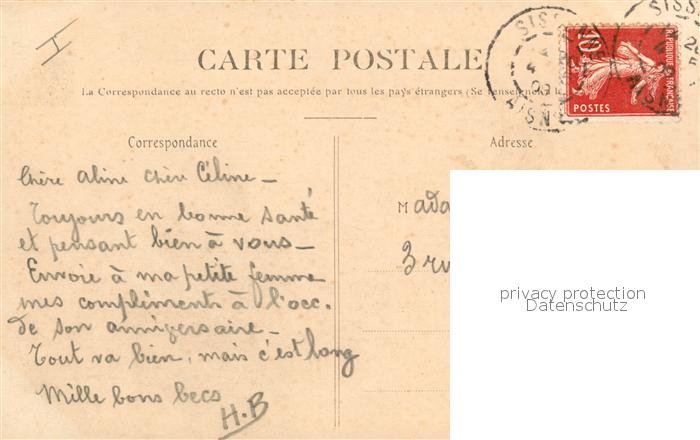 I
CARTE POSTALE
La Correspondance au recto n'est pas acceptée par tous les pays étrangers (Se renseigner
Correspondance
Adresse
SISSONNE
AISNE
09
10
POSTES
SISS
AISN
Chère Aline chère Céline —
Toujours en bonne santé
et pensant bien à vous —
Envoie à ma petite femme
mes compliments à l'occ.
de son anniversaire —
Tout va bien, mais c'est long
Mille bons becs
H.B
Mada
3 ru
privacy protection
Datenschutz